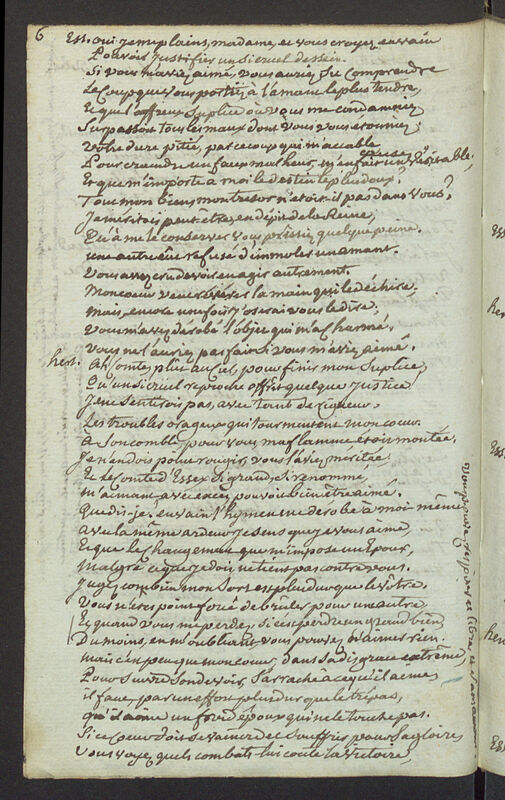 6
Ess. oui je me plains, madame, et vous croyez en vain
Pouvoir justifier un si cruel dessein.
Si vous m'aviez aimé, vous auriez su comprendre
Le coup que vous portiez à l'amant le plus tendre,
Et que l'affreux suplice où vous me condamniez
Surpassoit tous les maux dont vous vous étonniez;
votre dure pitié, par ce coup qui m'accable,
Pour craindre un faux malheur, m'en fait un véritable.
Et que m'importe à moi le destin le plus doux?
Tout mon bien, mon tresor n'étoit-il pas dans vous?
J'meritois peut-être, en dépit de la Reine,
Qu'à me le conserver vous prissiez quelque peine.
une autre eut refusé d'immoler un amant.
Vous avez cru devoir en agir autrement.
Mon coeur veut révérer la main qui le déchire,
mais, encore une fois, j'oserai vous le dire;
vous m'avez derobé l'objet qui m'a charmé.
vous ne l'auriez pas fait si vous m'aviez aimé.
hent. Ah! Comte, plût au ciel, pour finir mon suplice,
Qu'un si cruel reproche offrit quelque justice!
Je ne sentirois pas, avec tant de rigueur,
Les troubles orageux qui tourmentent mon coeur.
Au comble, pour vous, ma flamme étoit montée.
Je n'en dois point rougir, vous l'aviez meritée:
Et le Comte d'Essex si grand, si renommé,
m'aimant avec excès, pouvoit bien être aimé.
Que dis-je. en vain l'hymen me derobe à moi-même
avec la même ardeur je sens que je vous aime,
Et que le changement que m'impose un Epoux,
malgré ce que je dois ne tient pas contre vous.
Jugez combien mon sort est plus dur que le vôtre.
Vous n'êtes point forcé de brûler pour une autre
Et quand vous me perdez, si c'est perdre un grand bien,
Du moins, en m'oubliant vous pouvez n'aimer rien.
mais c'est peu que mon coeur, dans sa disgrace extrême
Pour suivre son devoir, s'arrache à ce qu'il aime
il faut, par un effort plus dur que le trépas,
qu'il aime un froid époux qui ne le touche pas.
Si ce coeur doit se vaincre et souffrir pour sa gloire,
Vous voyez quels combats lui coute la victoire,